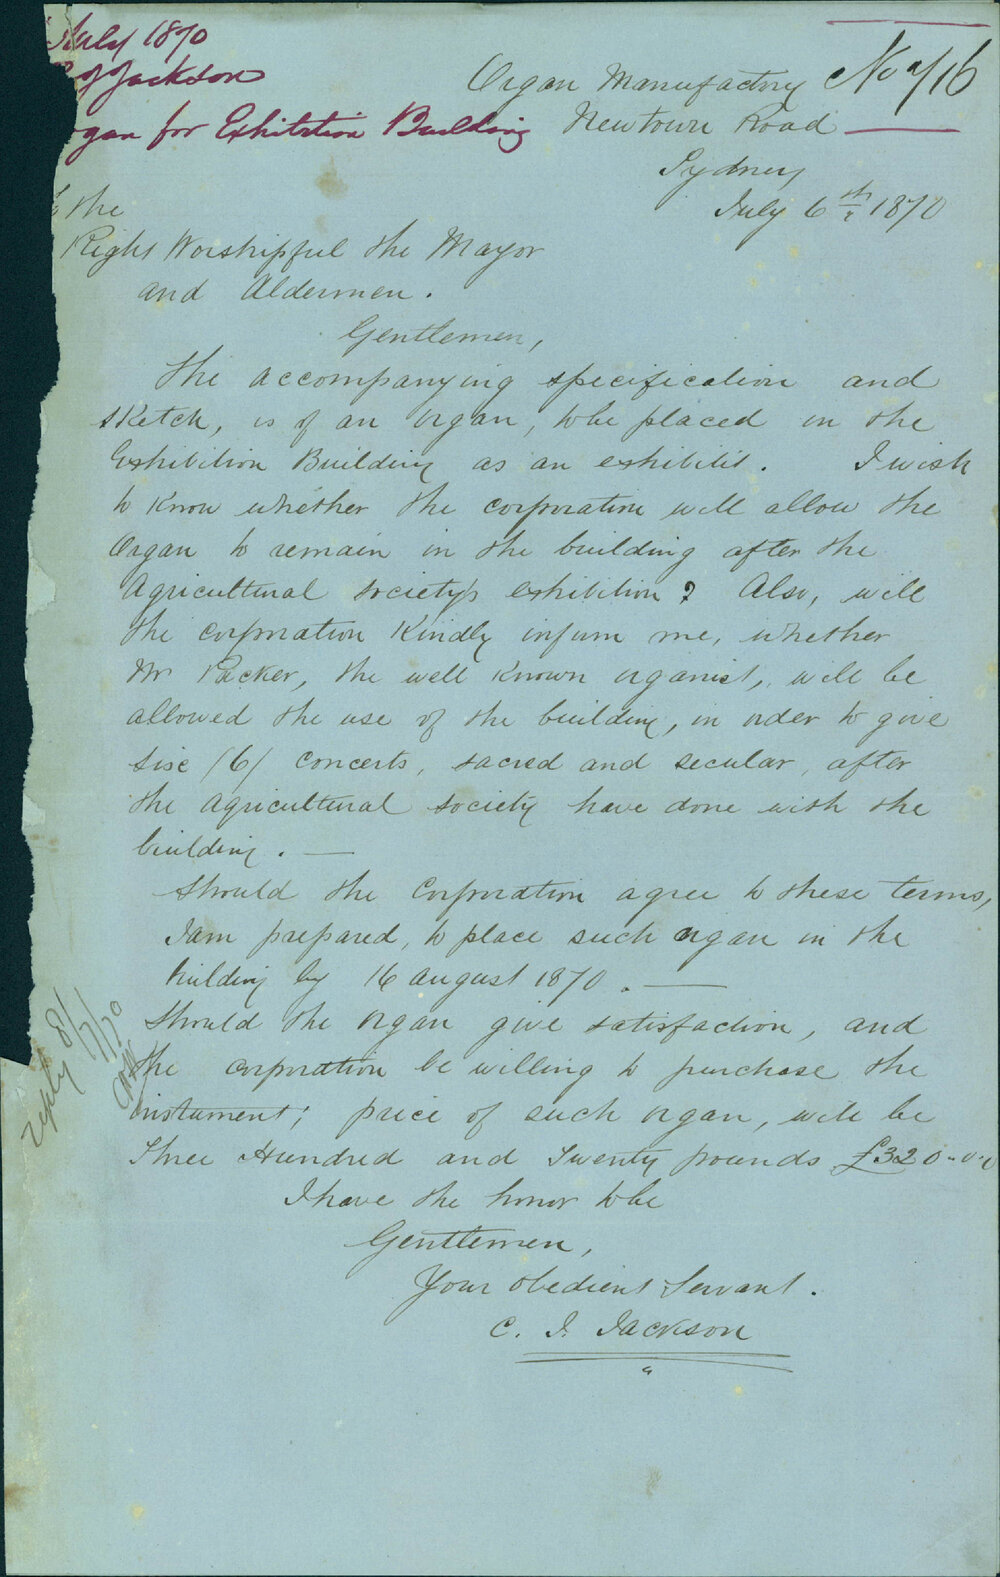 July 1870
C J Jackson
Organ for Exhibition Building
No 716
Organ Manufactory
Newtown Road
Sydney
July 6th 1870
To the
Right Worshipful the Mayor
and Aldermen.
Gentlemen,
The accompanying specification and
sketch, is of an organ, to be placed in the
Exhibition Building as an exhibit. I wish
to know whether the corporation will allow the
Organ to remain in the building after the
Agricultural society's exhibition? Also, will
the corporation kindly inform me, whether
Mr Packer, the well known organist, will be
allowed the use of the building, in order to give
six (6) concerts, sacred and secular, after
the agricultural society have done with the
building. —
Should the Corporation agree to these terms,
I am prepared, to place such organ in the
building by 16 august 1870. —
Should the organ give satisfaction, and
the corporation be willing to purchase the
instument; price of such organ, will be
Three Hundred and Twenty pounds £320-0-0
I have the honor to be
Gentlemen,
Your obedient Servant.
C. J. Jackson
reply 8/7/70